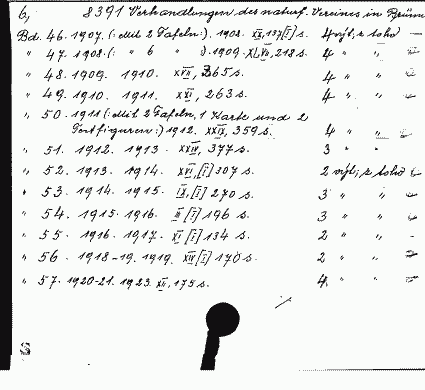 6, 8391 Verhandlungen des naturf. Vereines in Brünn
Bd. 46. 1907. (: Mit 2 Tafeln :). 1908. XX, 132 [I] s. 4 výt., z toho —
" 47. 1908. (: " 6 " :). 1909. XLVII, 218 s. 4 " " —
" 48. 1909. 1910. XXV, 265 s. 4 " " —
" 49. 1910. 1911. XXI, 263 s. 4 " " —
" 50. 1911 (: Mit 2 Tafeln, 1 Karte und 2
Textfiguren :) 1912. XXIX, 359 s. 4 " " —
" 51. 1912. 1913. XXIV, 377 s. 3 " "
" 52. 1913. 1914. XVI, [I] 307 s. 2 výt., z toho —
" 53. 1914. 1915. IX, [I] 270 s. 3 " " —
" 54. 1915. 1916. III [I] 196 s. 3 " " —
" 55. 1916. 1917. XI [I] 134 s. 2 " " -
" 56. 1918-19. 1919. XIV [I] 170 s. 2 " " —
" 57. 1920-21. 1923. XII, 175 s. 4 " " —
S